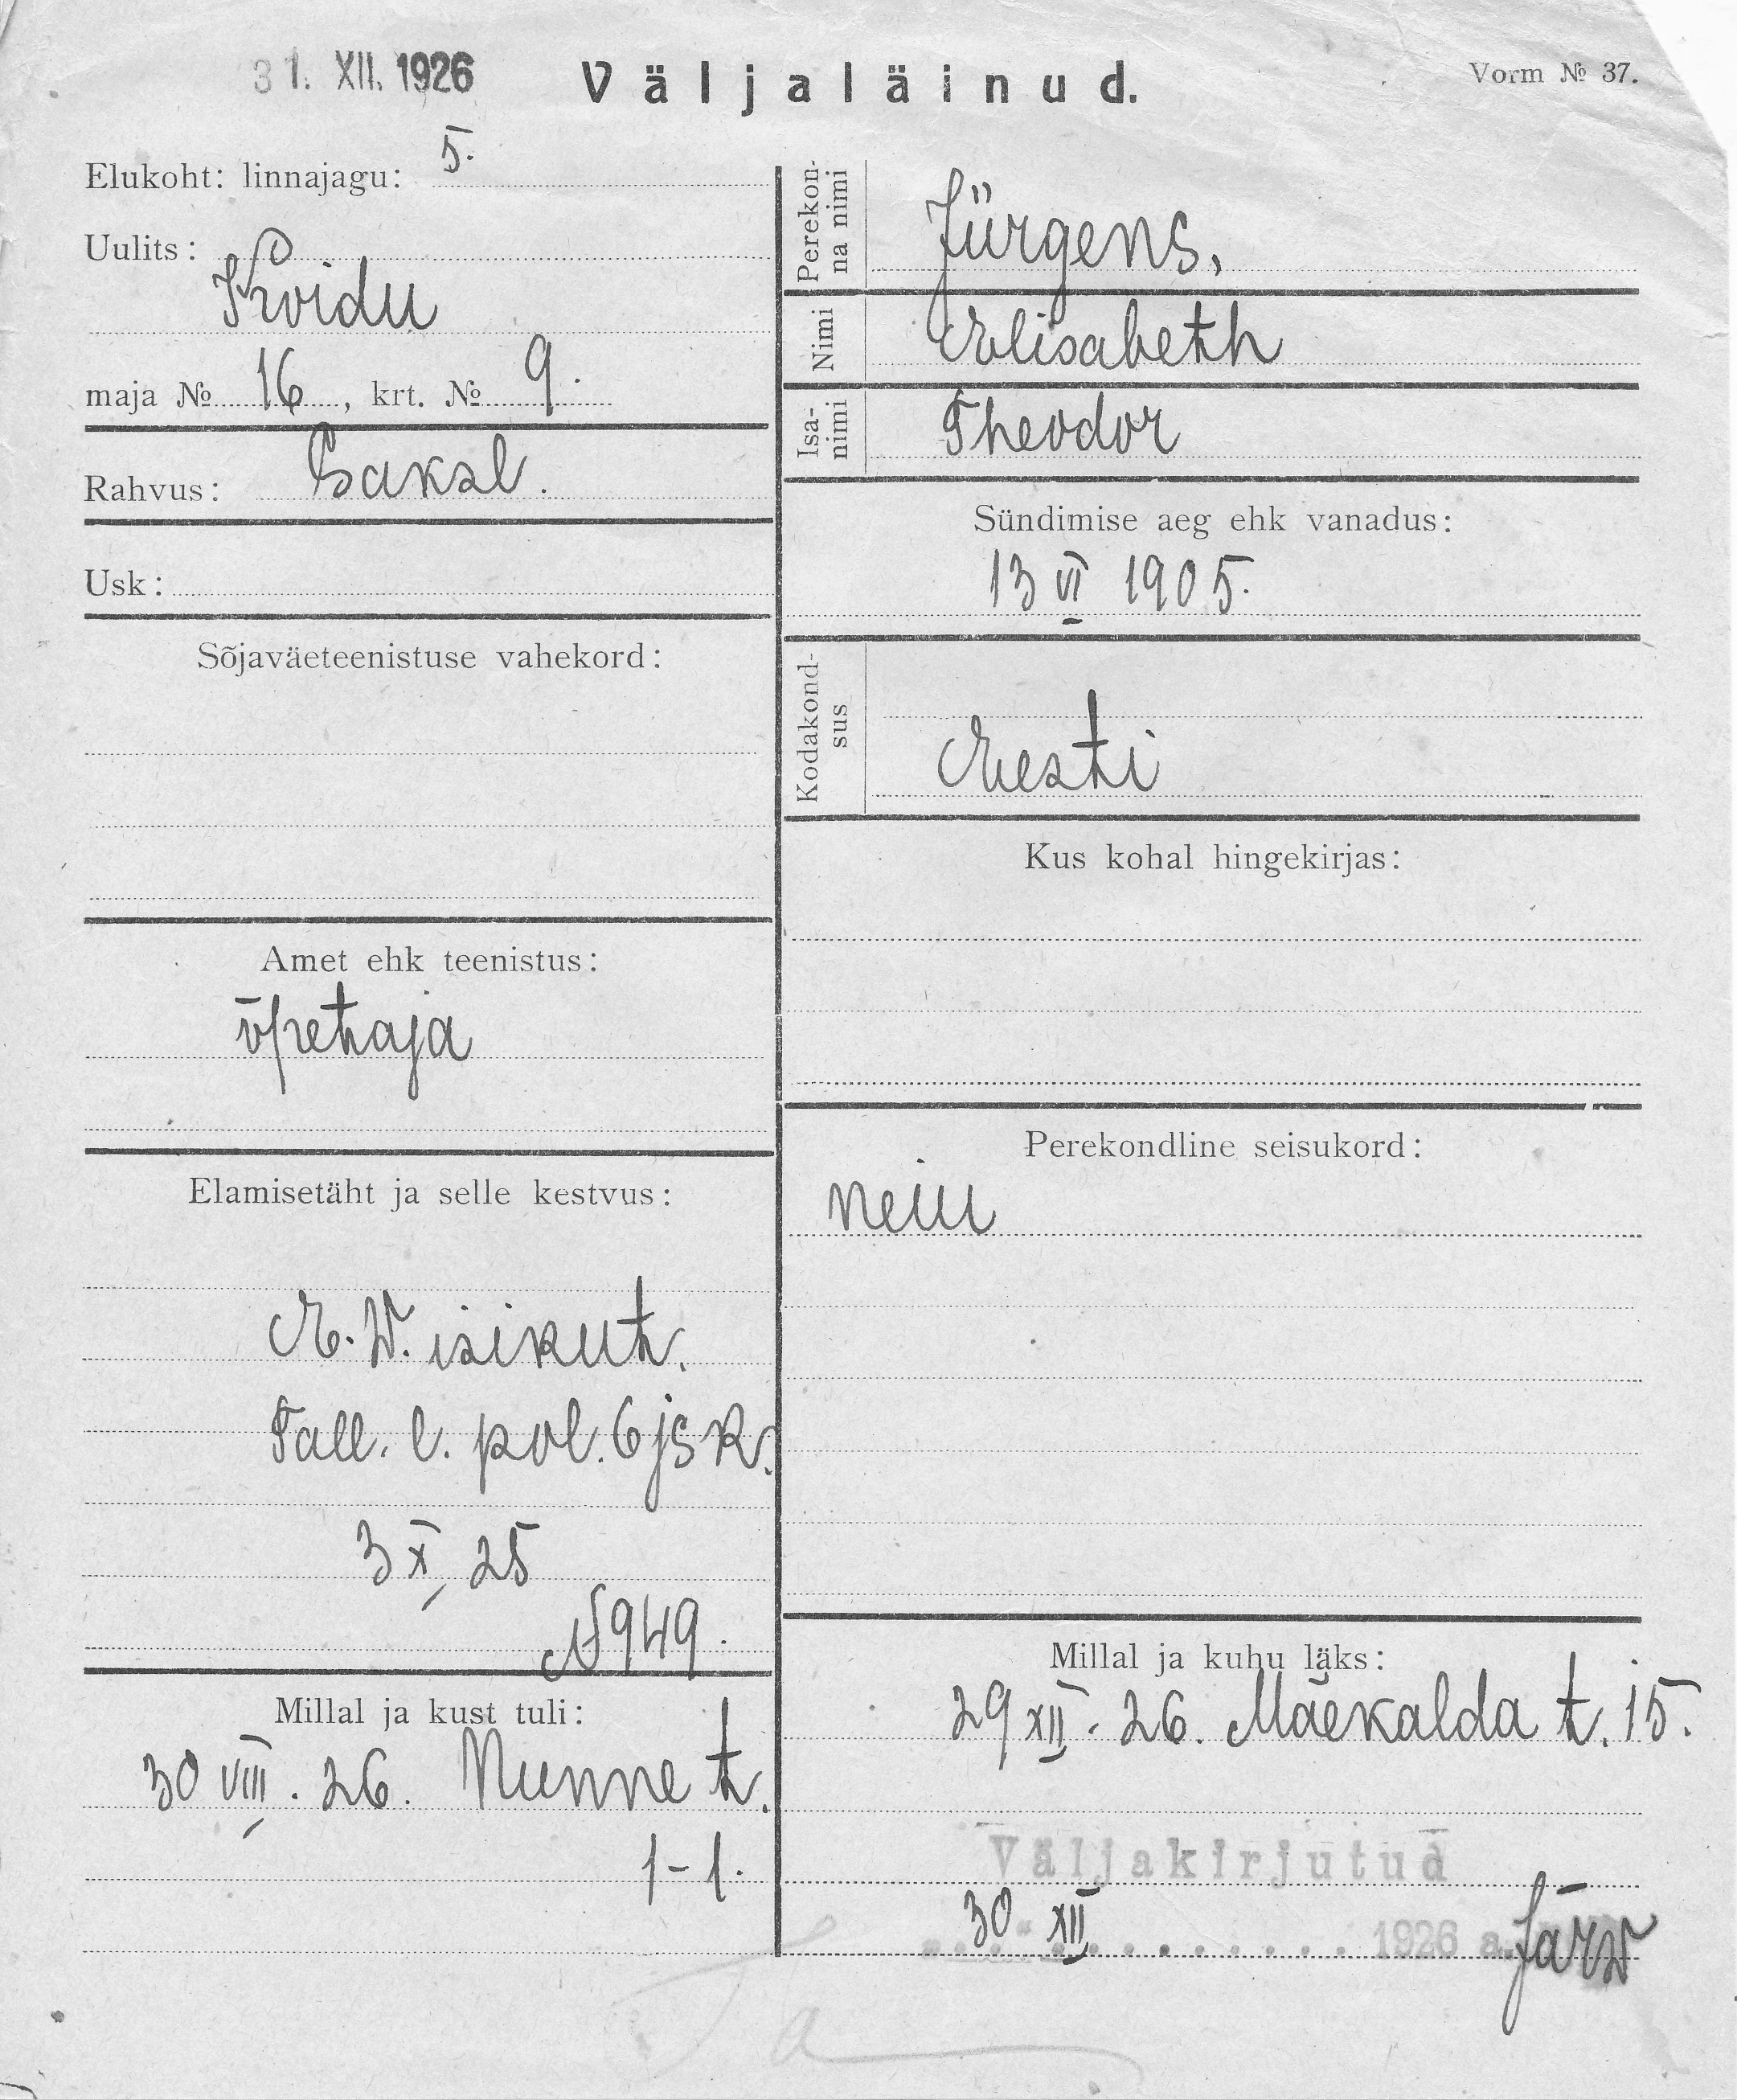 31. XII. 1926
Väljaläinud.
Vorm № 37.
Elukoht: linnajagu: 5.
Uulits:
Koidu
maja № 16, krt. № 9.
Rahvus: Saksl.
Usk:
Sõjaväeteenistuse vahekord:
Amet ehk teenistus:
õpetaja
Elamisetäht ja selle kestvus:
E. W. isikut.
Tall. l. pol. 6 jsk.
3 X 25
N 949.
Millal ja kust tuli:
30 VIII. 26. Nunne t.
1-1.
Perekon-
na nimi
Jürgens,
Nimi
Elisabeth
Isa-
nimi
Theodor
Sündimise aeg ehk vanadus:
13 VI 1905.
Kodakond-
sus
Eesti
Kus kohal hingekirjas:
Perekondline seisukord:
neiu
Millal ja kuhu läks:
29 XII. 26. Mäekalda t. 15.
Väljakirjutud
30 XII 1926 a. Järw